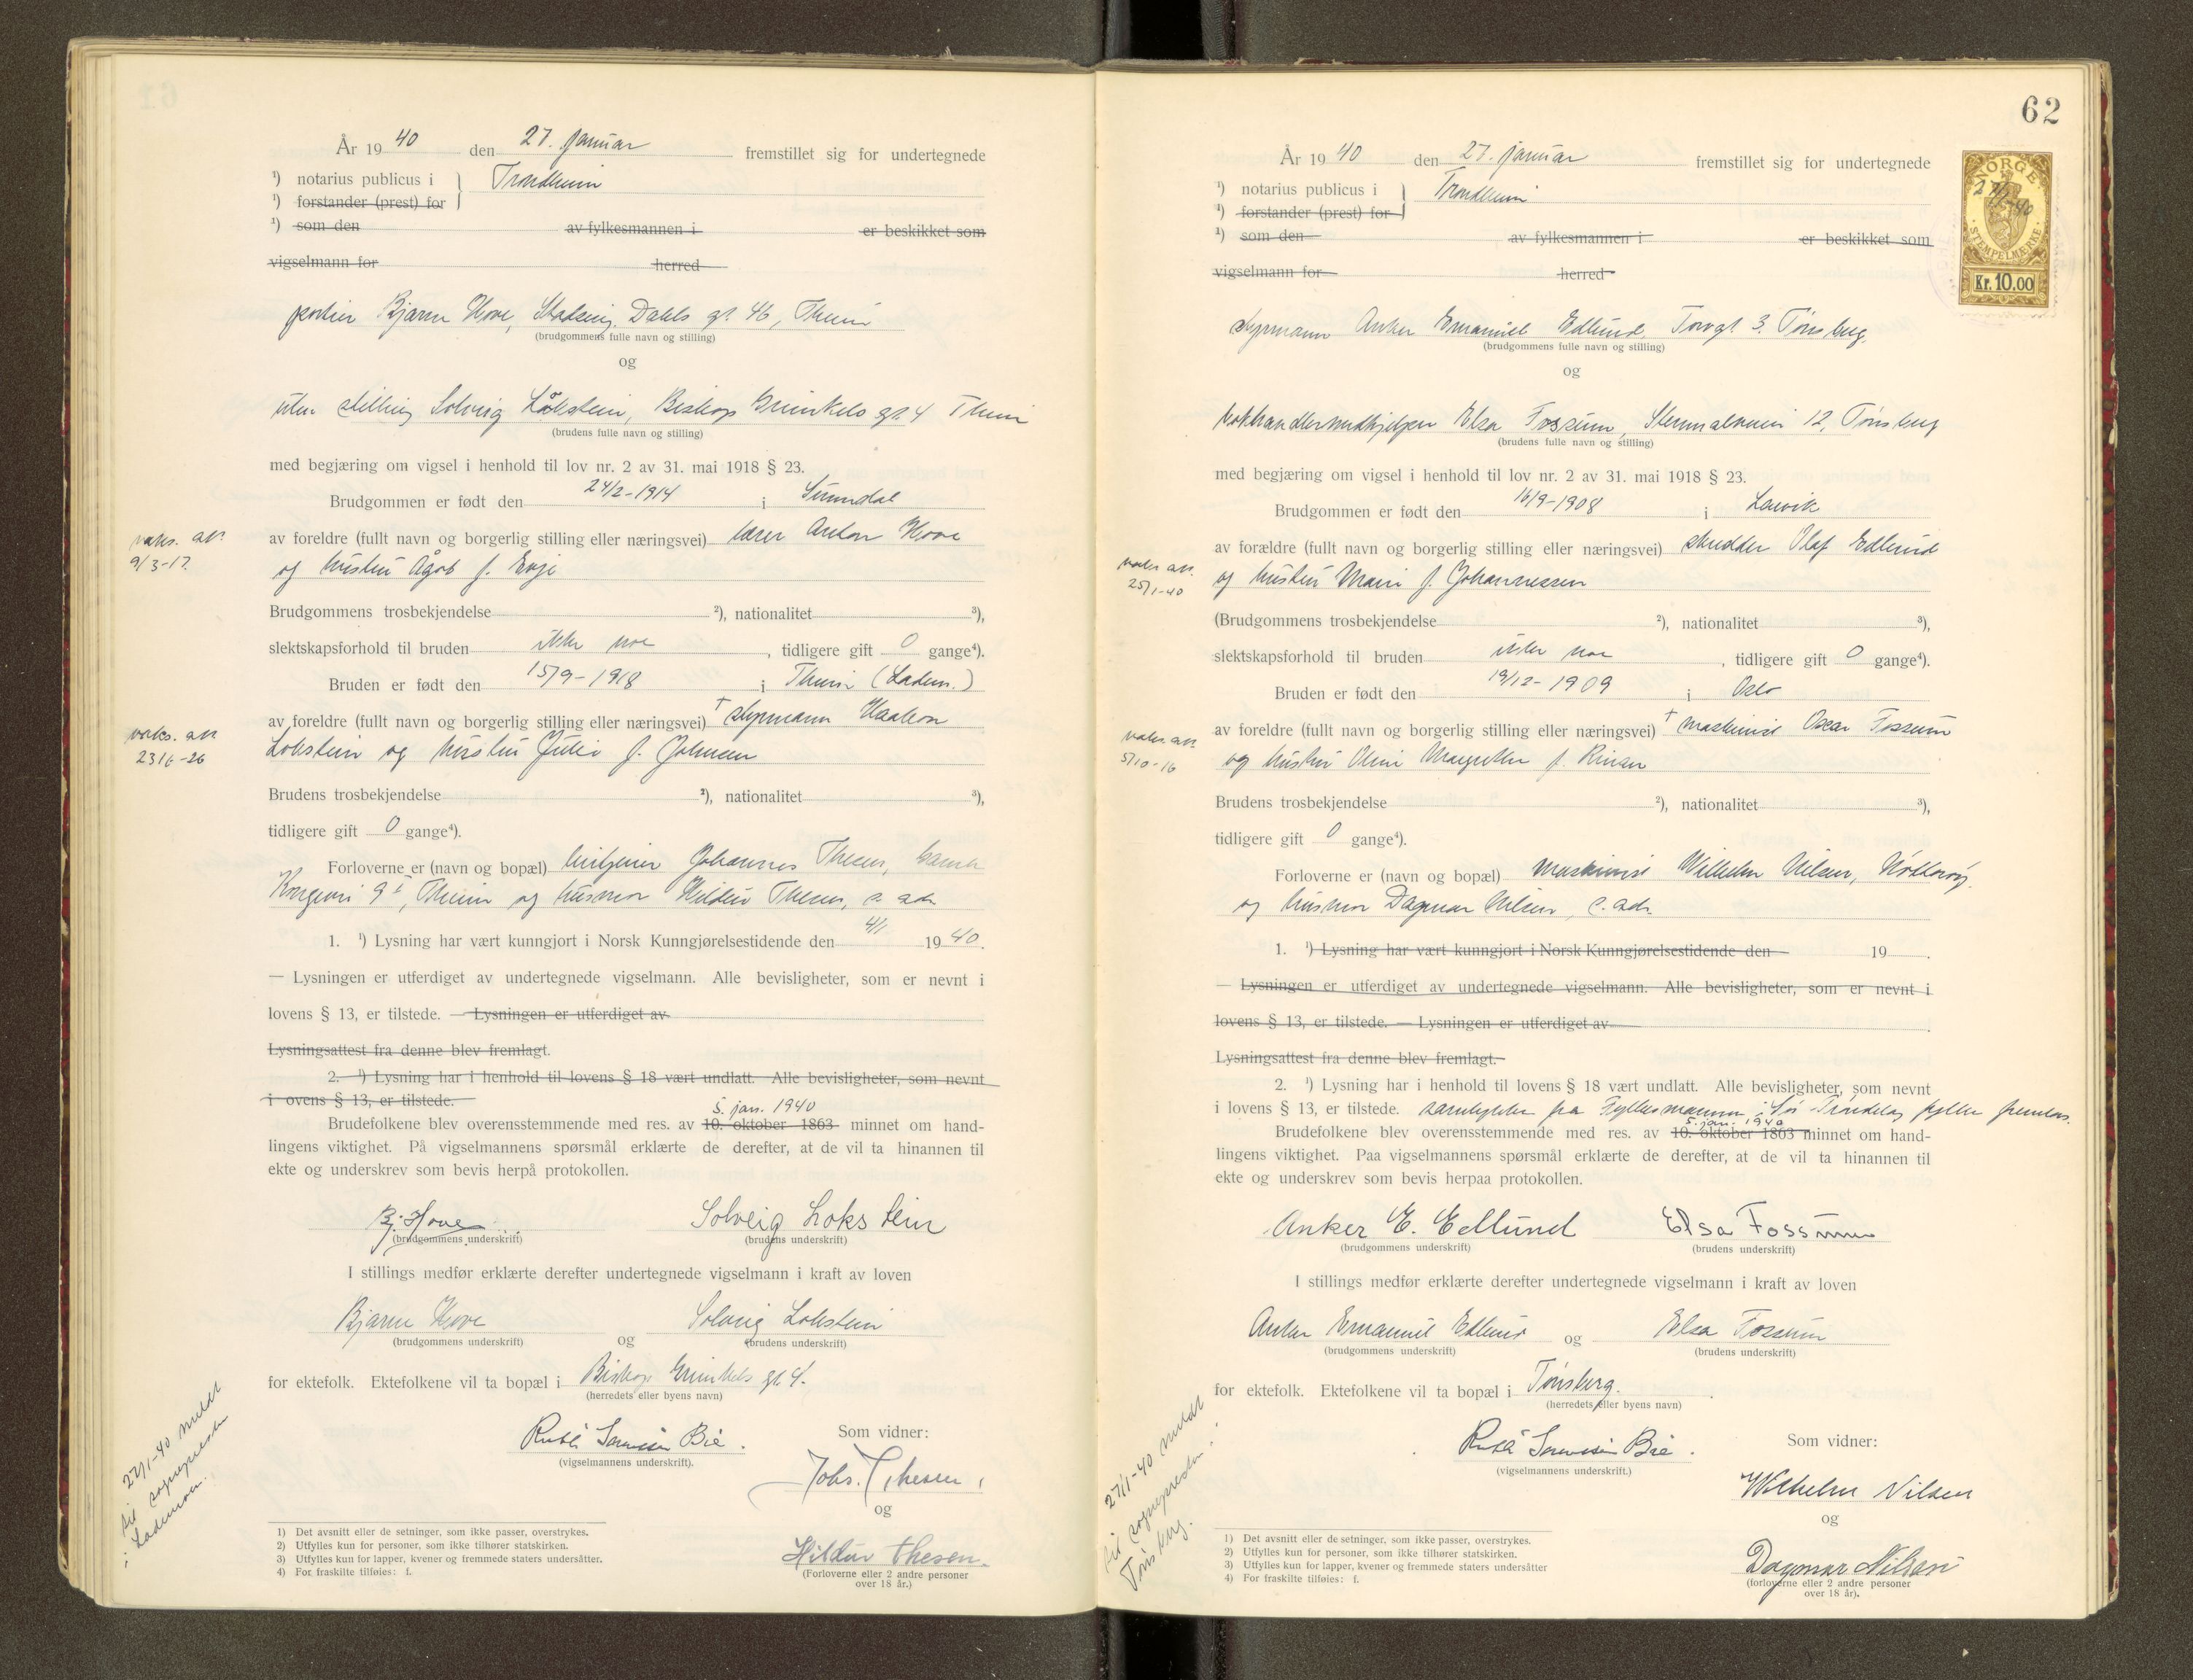 År 1940 den 27. januar fremstillet sig for undertegnede
¹) notarius publicus i Trondheim
¹) forstander (prest) for
¹) som den av fylkesmannen i er beskikket som
vigselmann for herred
portier Bjarne Hove, Stadsing. Dahls gt. 46, Thein
(brudgommens fulle navn og stilling)
og
uten stilling Solveig Lokstein, Biskop Grimkels gt. 4 Thein
(brudens fulle navn og stilling)
med begjæring om vigsel i henhold til lov nr. 2 av 31. mai 1918 § 23.
Brudgommen er født den 24/2-1914 i Sunndal
vaks. att.
9/3-17.
av foreldre (fullt navn og borgerlig stilling eller næringsvei) lærer Anton Hove
og hustru Ågot f. Evje
Brudgommens trosbekjendelse ²), nationalitet ³),
slektskapsforhold til bruden ikke noe, tidligere gift 0 gange⁴).
Bruden er født den 15/9-1918 i Theim (Ladem.)
av foreldre (fullt navn og borgerlig stilling eller næringsvei) † styrmann Haakon
vaks. att
23/6-26
Lokstein og hustru Julie f. Johnsen
Brudens trosbekjendelse ²), nationalitet ³),
tidligere gift 0 gange⁴).
Forloverne er (navn og bopæl) Johannes Thesen, Gamle
Kongevei 9ᴵ, Theim og husmor Hildur Thesen, s. adr.
1. ¹) Lysning har vært kunngjort i Norsk Kunngjørelsestidende den 4/1 1940.
— Lysningen er utferdiget av undertegnede vigselmann. Alle bevisligheter, som er nevnt i
lovens § 13, er tilstede. — Lysningen er utferdiget av
Lysningsattest fra denne blev fremlagt.
2. ¹) Lysning har i henhold til lovens § 18 vært undlatt. Alle bevisligheter, som nevnt
i ovens § 13, er tilstede.
5. jan. 1940
Brudefolkene blev overensstemmende med res. av 10. oktober 1863 minnet om hand-
lingens viktighet. På vigselmannens spørsmål erklærte de derefter, at de vil ta hinannen til
ekte og underskrev som bevis herpå protokollen.
Bj. Hove Solveig Lokstein
(brudgommens underskrift) (brudens underskrift)
I stillings medfør erklærte derefter undertegnede vigselmann i kraft av loven
Bjarne Hove og Solveig Lokstein
(brudgommens underskrift) (brudens underskrift)
for ektefolk. Ektefolkene vil ta bopæl i Biskop Grimkels gt. 4.
(herredets eller byens navn)
Som vidner:
(vigselmannens underskrift).
Johs. Thesen
og
Hildur Thesen.
(Forloverne eller 2 andre personer
over 18 år.)
27/1-40 meldt
til sognepresten
i Lademoen.
1) Det avsnitt eller de setninger, som ikke passer, overstrykes.
2) Utfylles kun for personer, som ikke tilhører statskirken.
3) Utfylles kun for lapper, kvener og fremmede staters undersåtter.
4) For fraskilte tilføies: f.
62
NORGE
27/1-40
STEMPELMERKE
Kr. 10.00
År 1940 den 27. januar fremstillet sig for undertegnede
¹) notarius publicus i Trondheim
¹) forstander (prest) for
¹) som den av fylkesmannen i er beskikket som
vigselmann for herred
styrmann Anker Emanuel Edlund, Torvgt 3. Tønsberg.
(brudgommens fulle navn og stilling)
og
bokhandlermedhjelper Elsa Fossum, 12, Tønsberg
(brudens fulle navn og stilling)
med begjæring om vigsel i henhold til lov nr. 2 av 31. mai 1918 § 23.
Brudgommen er født den 16/9-1908 i Larvik
av forældre (fullt navn og borgerlig stilling eller næringsvei) skredder Olaf Edlund
vaks att.
25/1-40
og hustru Marie f. Johannessen
(Brudgommens trosbekjendelse ²), nationalitet ³),
slektskapsforhold til bruden ikke noe, tidligere gift 0 gange⁴).
Bruden er født den 19/12-1909 i Oslo
av foreldre (fullt navn og borgerlig stilling eller næringsvei) † maskinist Oscar Fossum
vaks. att
5/10-16
og hustru Margrethe f.
Brudens trosbekjendelse ²), nationalitet ³),
tidligere gift 0 gange⁴).
Forloverne er (navn og bopæl) maskinist Wilhelm Nilsen, Nøtterøy.
og husmor Dagmar Nilsen, s. adr.
1. ¹) Lysning har vært kunngjort i Norsk Kunngjørelsestidende den 19 .
— Lysningen er utferdiget av undertegnede vigselmann. Alle bevisligheter, som er nevnt i
lovens § 13, er tilstede. — Lysningen er utferdiget av .
Lysningsattest fra denne blev fremlagt.
2. ¹) Lysning har i henhold til lovens § 18 vært undlatt. Alle bevisligheter, som nevnt
i lovens § 13, er tilstede. samtykke fra Fylkesmannen i Sør Trøndelag fylke
5. jan. 1940
Brudefolkene blev overensstemmende med res. av 10. oktober 1863 minnet om hand-
lingens viktighet. Paa vigselmannens spørsmål erklærte de derefter, at de vil ta hinannen til
ekte og underskrev som bevis herpaa protokollen.
Anker E. Edlund Elsa Fossum
(brudgommens underskrift) (brudens underskrift)
I stillings medfør erklærte derefter undertegnede vigselmann i kraft av loven
Anker Emanuel Edlund og Elsa Fossum
(brudgommens underskrift) (brudens underskrift)
for ektefolk. Ektefolkene vil ta bopæl i Tønsberg.
(herredets eller byens navn)
Som vidner:
(vigselmannens underskrift.)
Wilhelm Nilsen
og
Dagmar Nilsen
(forloverne eller 2 andre personer
over 18 år).
27/1-40 meldt
til sognepresten i
Tønsberg.
1) Det avsnitt eller de setninger, som ikke passer, overstrykes.
2) Utfylles kun for personer, som ikke tilhører statskirken.
3) Utfylles kun for lapper, kvener og fremmede staters undersåtter
4) For fraskilte tilføies: f.